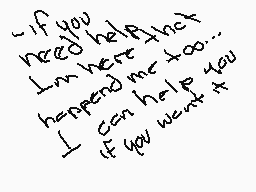 -if you
need help
Im here that
happend me too...
I can help you
if you want it